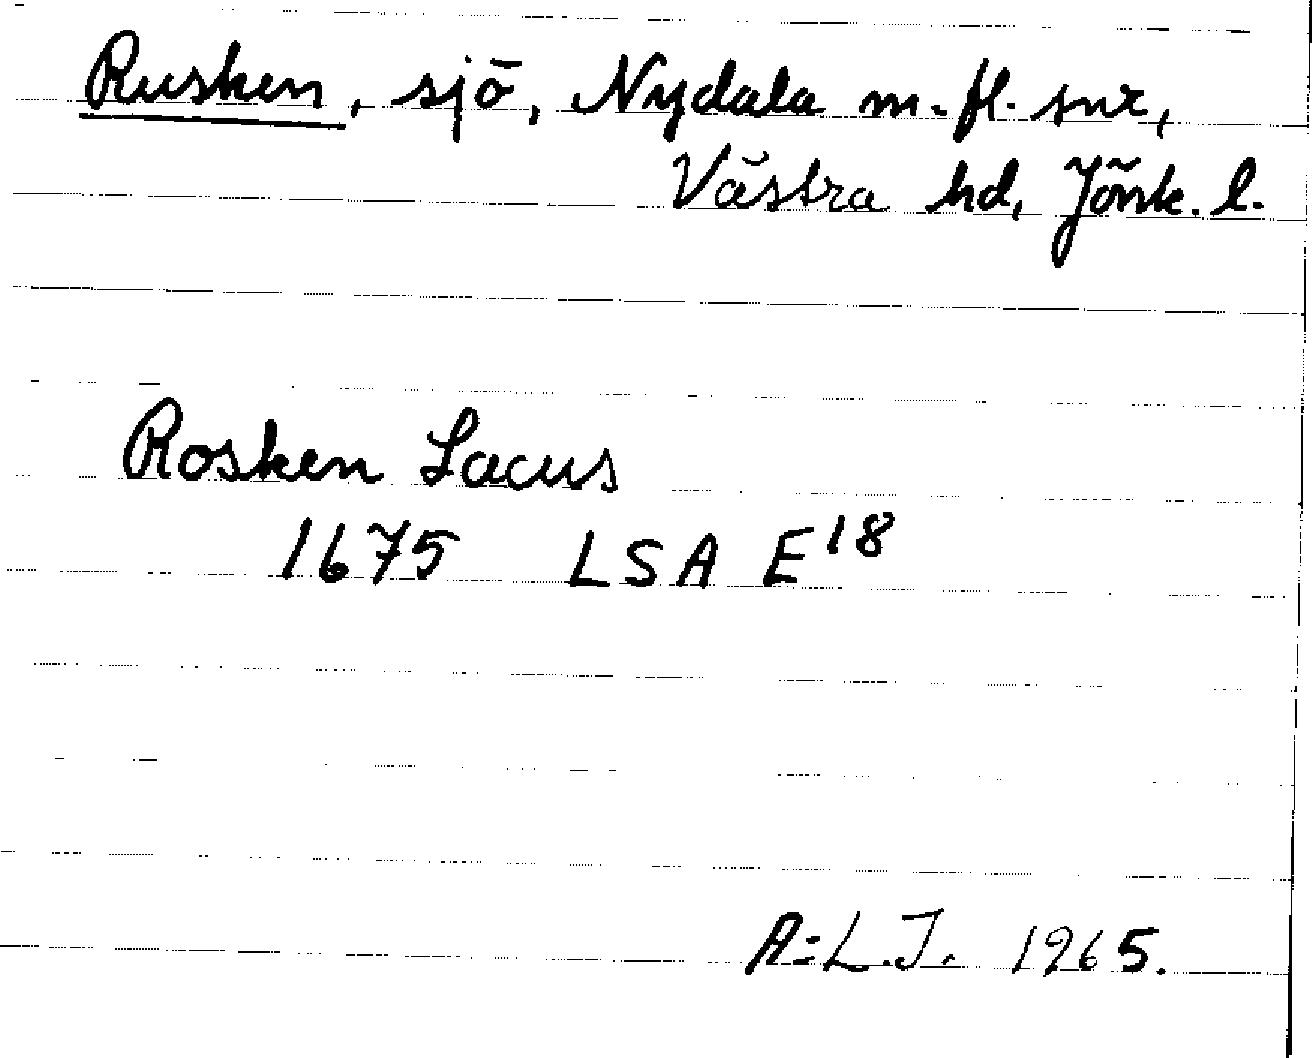 Rusken, sjö, Nydala m. fl. snr,
Västra hd, Jönk. l.
Rosken Lacus
1675 LSA E18
A=L.J. 1965.